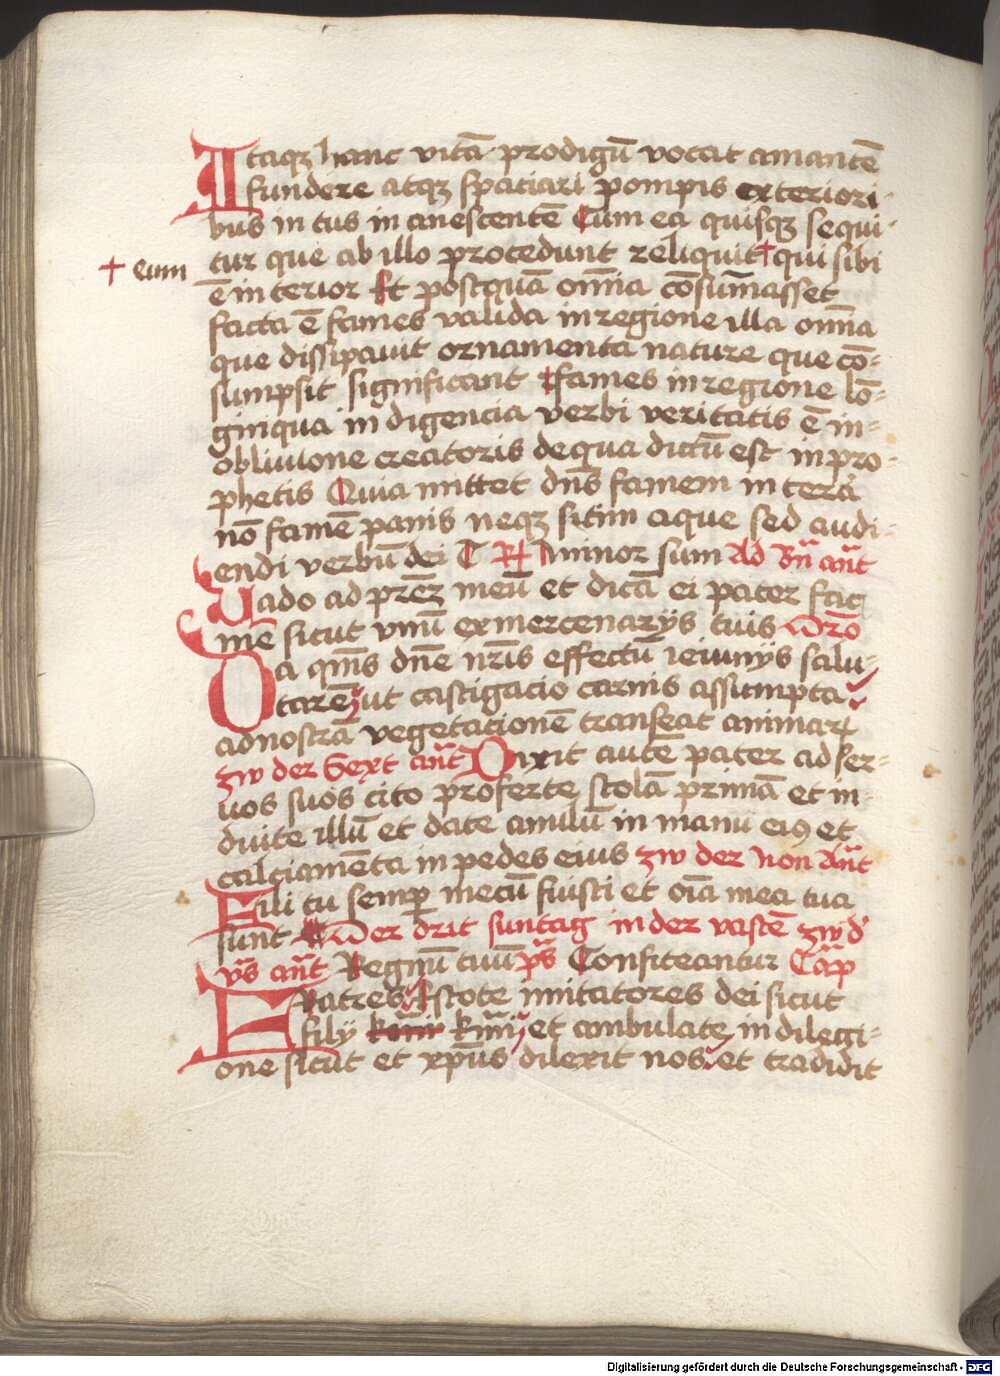 Itaqꝫ hanc vitā prodigū vocat amantē
fundere atqꝫ spaciari pompis exteriori-
bus in tus in anescentē Cum ea quisqꝫ sequi-
tur que ab illo procedunt reliquit † qui sibi
† eum
ē interior Et postquā om̄ia cōsum̄asset
facta ē fames valida in regione illa om̄ia
que dissipauit ornamenta nature que cō-
sumpsit significant fames in regione lō-
ginqua indigencia verbi veritatis ē in-
obliuione creatoris de qua dictū est in pro-
phetis Quia mittet dn̄s famem in terā
nō famē panis neqꝫ sitim aque sed audi-
endi verbū dei minor sum Ad Bn̄ an̄t
Uado ad prēꝫ meū et dicā ei pater fac
mē sicut vnū ex mercenarijs tuis Orō
Da qm̄s dn̄e nr̄is effectū ieiunijs salu-
tarē ut castigacio carnis assumpta
ad nostrā vegetationē transeat animaꝝ
zw der Sext an̄t Dixit autē pater ad ser-
uos suos cito proferte stolā primā et in-
duite illū et date anulū in manu eiꝯ et
calciamēta in pedes eius zw der Non An̄t
Fili tu semꝑ mecū fuisti et oīa mea tua
sunt Der drit suntag in der vastē zw d'
vs̄ an̄t Regnū tuū ps̄ Confiteantur Cap̄
Fratres Estote imitatores dei sicut
filij km̄i et ambulate in dilecti-
one sicut et xpūs dilexit nos et tradidit
Digitalisierung gefördert durch die Deutsche Forschungsgemeinschaft - DFG